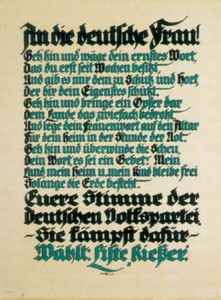 An die deutsche Frau!
Geh hin und wäge dein ernstes Wort,
Das du erst seit Wochen besitzt,
Und gib es nur dem zu Schutz und Hort
Der dir dein Eigenstes schützt.
Geh hin und bringe ein Opfer dar
Dem Lande das zwiefach bedroht,
Und lege dein Frauenwort auf den Altar
Für dein Heim in der Stunde der Not.
Geh hin und überwinde die Scheu,
Dein Wort es sei ein Gebet: Mein
Land mein Heim u. mein Kind bleibe frei
Solange die Erde besteht.
Euere Stimme der
Deutschen Volkspartei
Sie kämpft dafür
Wählt: Liste Rießer.